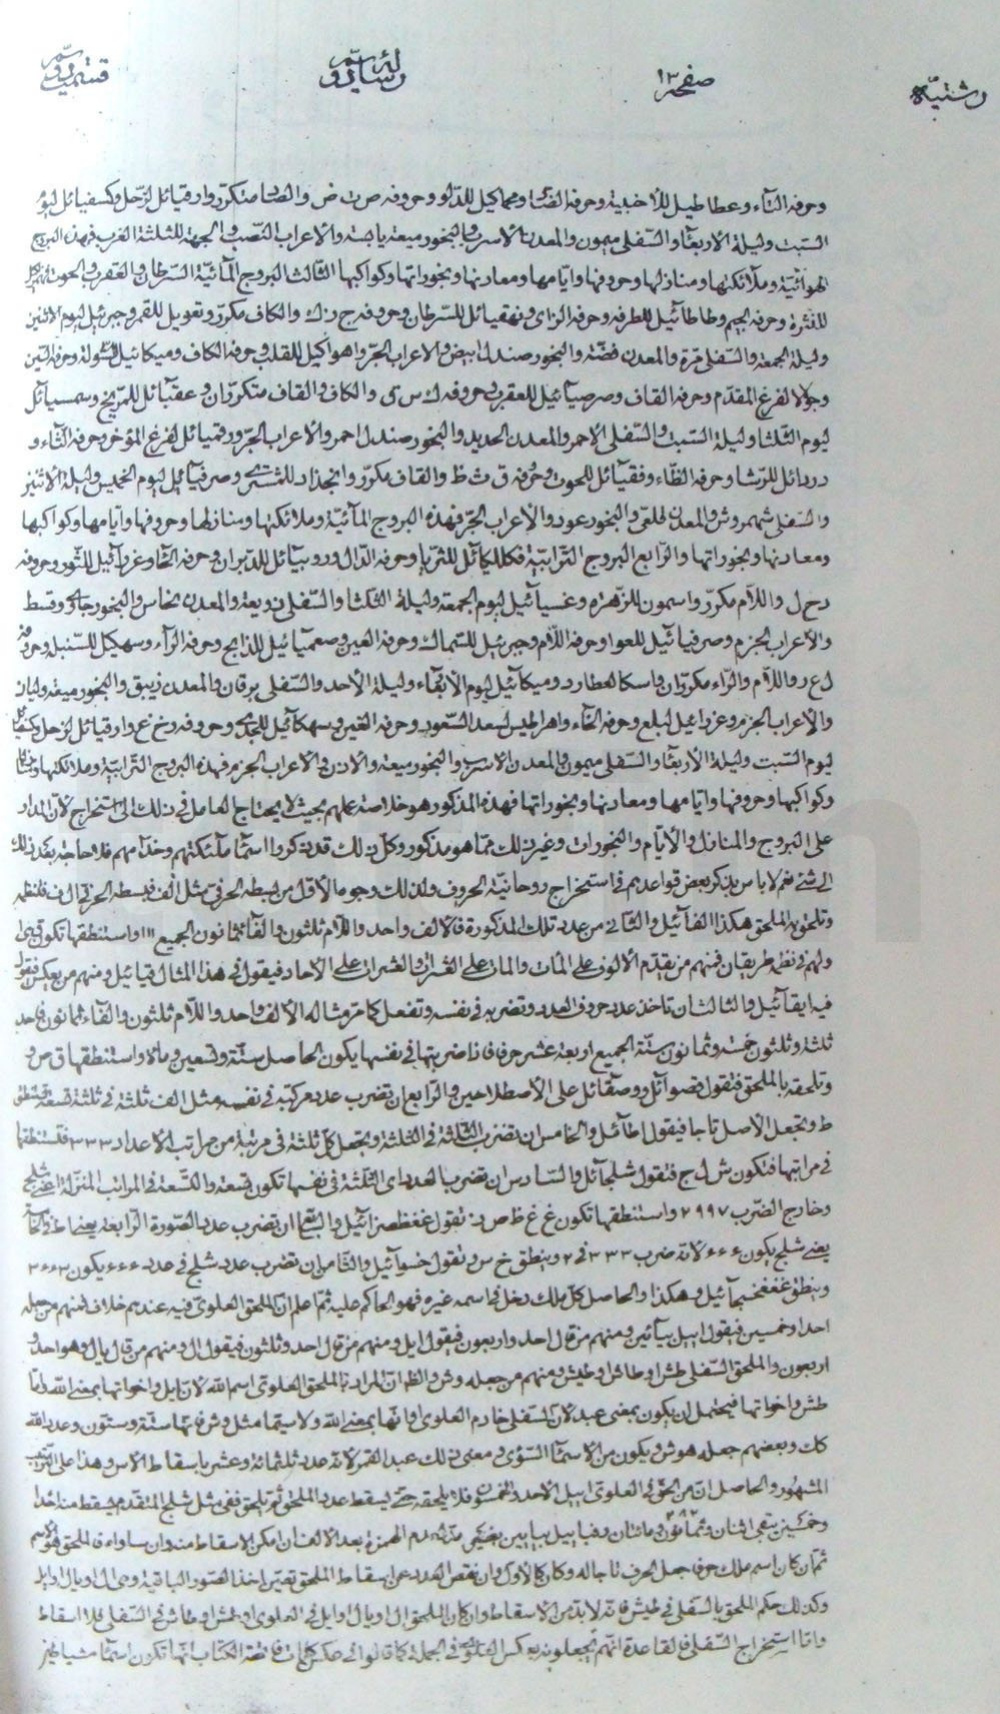 رشتیه صفحه ١٣ رسائل قسم
وحرفه التاء وعطاطيل للأخبية وحرفه الضاد ومحماكيل للدلو وحروفه ص ت ض والضاد متكرر وارقيائل لزحل وكسفيائل ليوم
السبت وليلة الاربعاء والسفلى ميمون والمعدن الاسرب والبخور ميعة يابسة والاعراب النصب والجهة للثلثة الغرب فهذه البروج
الهوائية وملائكتها ومنازلها وحروفها وايامها ومعادنها وبخوراتها وكواكبها الثالث البروج المائية السرطان والعقرب والحوت
للنثرة وحرفه الجيم وطاطائيل للطرفه وحرفه الزاى ونهقيائل للسرطان وحروفه ج ز ك والكاف مكرر وتعويل للقمر وجبرئيل ليوم الاثنين
وليلة الجمعة والسفلى مرة والمعدن فضة والبخور صندل ابيض والاعراب الجر واهواكيل للقلب وحرفه الكاف وميكائيل للشولة وحرفه السين
للفرغ المقدم وحرفه القاف وصرصيائيل للعقرب وحروفه ك س ق والكاف والقاف متكرران وعقبائل للمريخ وسمسيائل
ليوم الثلثا وليلة السبت والسفلى الاحمر والمعدن الحديد والبخور صندل احمر والاعراب الجر ورقميائل لفرغ المؤخر وحرفه الثاء و
دردائل للرشا وحرفه الظاء وفقيائل للحوت وحروفه ق ث ظ والقاف مكرر وانجذاد للمشترى وصرفيائيل ليوم الخميس وليلة الاثنين
والسفلى شمهروش والمعدن قلعى والبخور عود والاعراب الجر فهذه البروج المائية وملائكتها ومنازلها وحروفها وايامها وكواكبها
ومعادنها وبخوراتها والرابع البروج الترابية فكلكيائل للثريا وحرفه الدال ودوبيائل للدبران وحرفه الحاء وغرائيل للثور وحروفه
د ح ل واللام مكرر واسمون للزهرة وعنسيائيل ليوم الجمعة وليلة الثلثا والسفلى زوبعة والمعدن نحاس والبخور جاوى وقسط
والاعراب الجزم وصرفيائيل للعوا وحرفه اللام وجبرئيل للسماك وحرفه العين وصعميائيل للذابح وحرفه الراء وسهكيل للسنبلة وحروفه
ل ع ر واللام والراء مكرران وباسكا لعطارد وميكائيل ليوم الأربعاء وليلة الأحد والسفلى برقان والمعدن زيبق والبخور ميعة ولبان
والاعراب الجزم وعزرائيل لبلع وحرفه الخاء واهراطيس لسعد السعود وحرفه الغين وسهكائيل للجدى وحروفه ر خ غ وارقيائل لزحل وكسفيائل
ليوم السبت وليلة الأربعا والسفلى ميمون والمعدن الاسرب والبخور ميعة ولاذن والاعراب الجزم فهذه البروج الترابية وملائكتها ومنازلها
وكواكبها وحروفها وايامها ومعادنها وبخوراتها فهذه المذكور هو خلاصة عملهم بحيث لا يحتاج العامل فى ذلك الى استخراج لان المدار
على البروج والمنازل والأيام والبخورات وغير ذلك مما هو مذكور وكل ذلك قد ذكروا اسماء ملائكتهم وخدامهم فلا حاجة بعد ذلك
الى شئ نعم لا باس بذكر بعض قواعدهم فى استخراج روحانية الحروف ولذلك وجوه الأول من بسطه الحرفى مثل الف فبسطه الحرفى ا ل ف فتنظمه
وتلحق به الملحق هكذا الفائيل والثانى من عدد تلك المذكورة فالالف واحد واللام ثلثون والفاء ثمانون الجميع ١١١ واستنطقها تكون ق ى ا
ولهم فى نظمه طريقان فمنهم من يقدم الألوف على المئات والمئات على العشرات والعشرات على الآحاد فيقول فى هذا المثال قيائيل ومنهم من يعكس فيقول
فيه ايقائيل والثالث ان تأخذ عدد حروف العدد وتضربه فى نفسه وتفعل كما مر مثاله الألف واحد واللام ثلثون والفاء ثمانون فواحد
ثلثة وثلثون خمسة وثمانون ستة الجميع اربعة عشر حرفا فاذا ضربتها فى نفسها يكون الحاصل ستة وتسعين ومائة واستنطقها ق ص و
وتلحقه بالملحق فتقول قصوائل ووصقائل على الاصطلاحين والرابع ان تضرب عدد مركبه فى نفسه مثل الف ثلثة فى ثلثة تسعة فتنطق
ط وتجعل الأصل تاجا فيقول اطائل والخامس ان تضرب الثلثة فى الثلثة وتجعل كل ثلثة فى مرتبة من مراتب الاعداد ٣٣٣ فتستنطقها
فى مراتبها فتكون ش ل ج فتقول شلجائل والسادس ان تضرب العدد اى الثلثة فى نفسها تكون تسعة والتسعة فى المراتب المنزلة اعنى شلج
وخارج الضرب ٢٩٩٧ واستنطقها تكون غ غ ظ ص ز تقول غغظصزائيل والسابع ان تضرب عدد الصورة الرابعة
يعنى شلج يكون لانه ضرب ٣٣٣ فى ٢ وينطق خ س و تقول خسوائيل والثامن ان تضرب عدد شلج فى عدد يكون
وينطق وهكذا والحاصل كل ملك دخل فى اسمه غيره فهو الحاكم عليه ثم اعلم ان الملحق العلوى فيه عندهم خلاف فمنهم من جعله
احدا وخمسين فيقول اييل بيائين ومنهم من قال احد واربعون فيقول ايل ومنهم من قال احد وثلثون فيقول ال ومنهم من قال يال وهو احد و
اربعون والملحق السفلى طش او طاش او طيش ومنهم من جعله وش والظاهر ان المراد بالملحق العلوى اسم الله لان ايل واخواتها بمعنى الله واما
طش واخواتها فيحتمل ان يكون بمعنى عبد لان السفلى خادم العلوى او انها بمعنى الله ولا سيما مثل وش فانها ستة وستون وعدد الله
كك وبعضهم جعله هوش ويكون من الاسماء السؤى ومعنى ذلك عبد القمر لانه عدد ثلثمائة وعشر باسقاط الاس وهذا على الترتيب
المشهور والحاصل ان من الحق فى العلوى اييل الاحد والخمسون فلا يلحقه حتى يسقط عدد الملحق ثم يلحق ففى مثل شلج المتقدم يسقط منه احدا
وخمسين يبقى اثنان وثمانون ومائتان بعد الالف ان امكن الاسقاط منه وان ساواه فالملحق هو الاسم
ثم ان كان اسم ملك حرفا جعل الحرف تاجا له وكان كالأول وان نقص العدد عن اسقاط الملحق تعين اخذ الصور الباقية وهى ال او يال او ايل
وكذلك حكم الملحق بالسفلى فى طيش فانه لابد من الاسقاط وان كان الملحق ال او يال او ايل فى العلوى او طش او طاش فى السفلى فلا اسقاط
واما استخراج السفلى فالقاعدة انهم يجعلونه بعكس العلوى فى الجملة كما قالوا فى عكس كلمات فاتحة الكتاب انها تكون اسماء شياطين